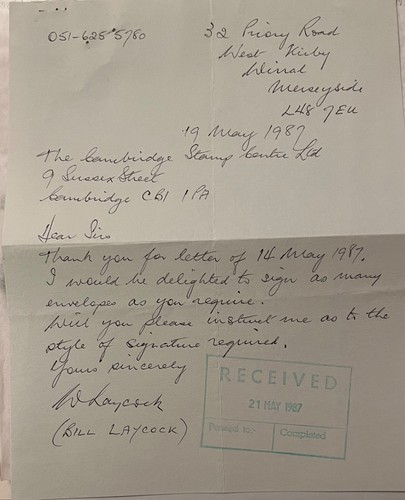 051-625 5780
32 Priory Road
West Kirby
Wirral
Merseyside
L48 7EU
19 May 1987
The Cambridge Stamp Centre Ltd
9 Sussex Street
Cambridge CB1 1PA
Dear Sirs
Thank you for letter of 14 May 1987.
I would be delighted to sign as many
envelopes as you require.
Will you please instruct me as to the
style of signature required.
Yours sincerely
W Laycock
(BILL LAYCOCK)
RECEIVED
21 MAY 1987
Passed to:-
Completed